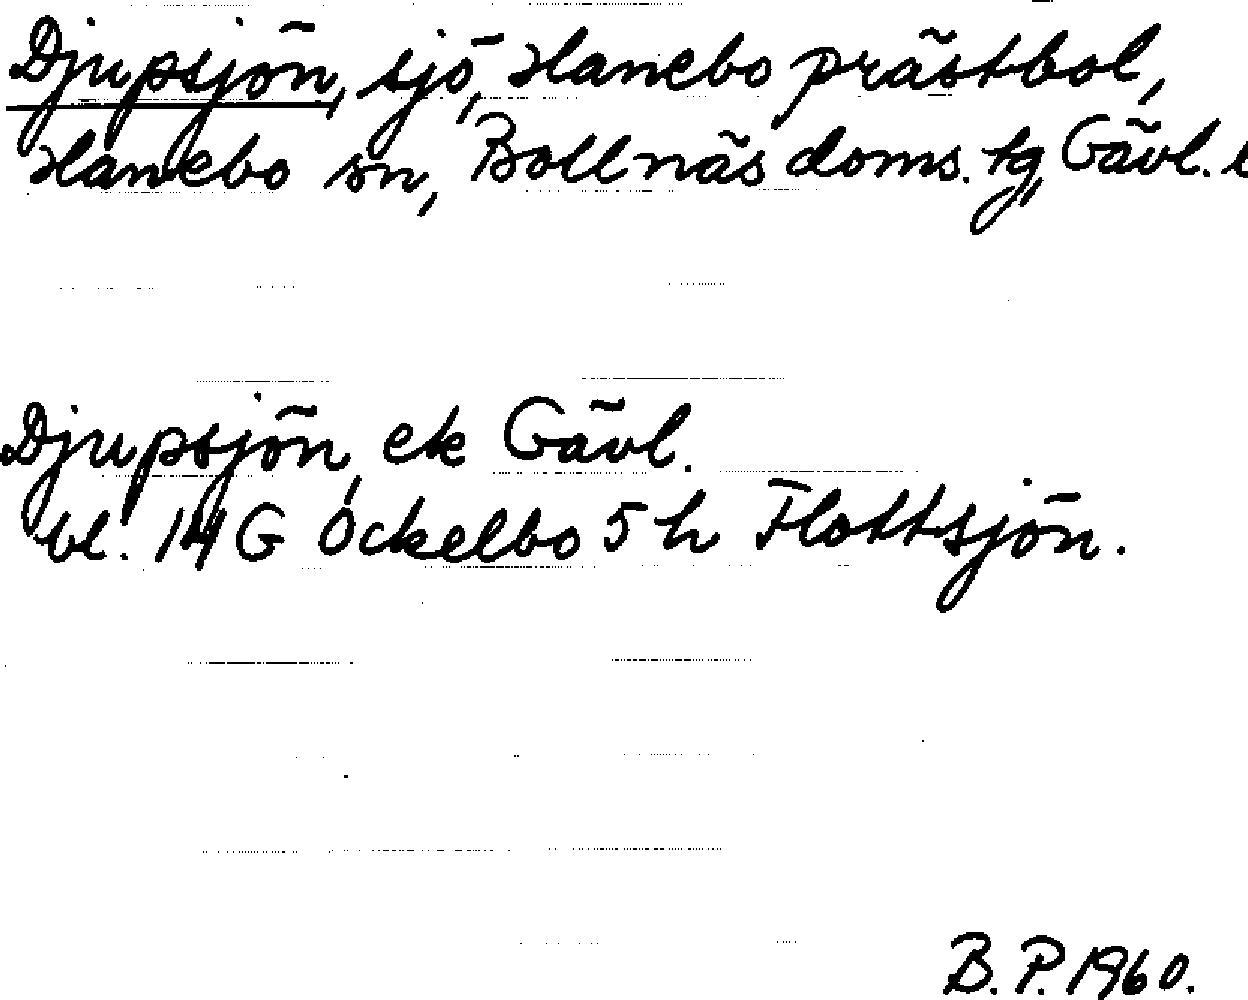 Djupsjön, sjö, Hanebo prästbol,
Hanebo sn, Bollnäs doms. tg, Gävl. l
Djupsjön, ek Gävl.
bl. 14G Ockelbo 5 h Flottsjön.
B. P. 1960.